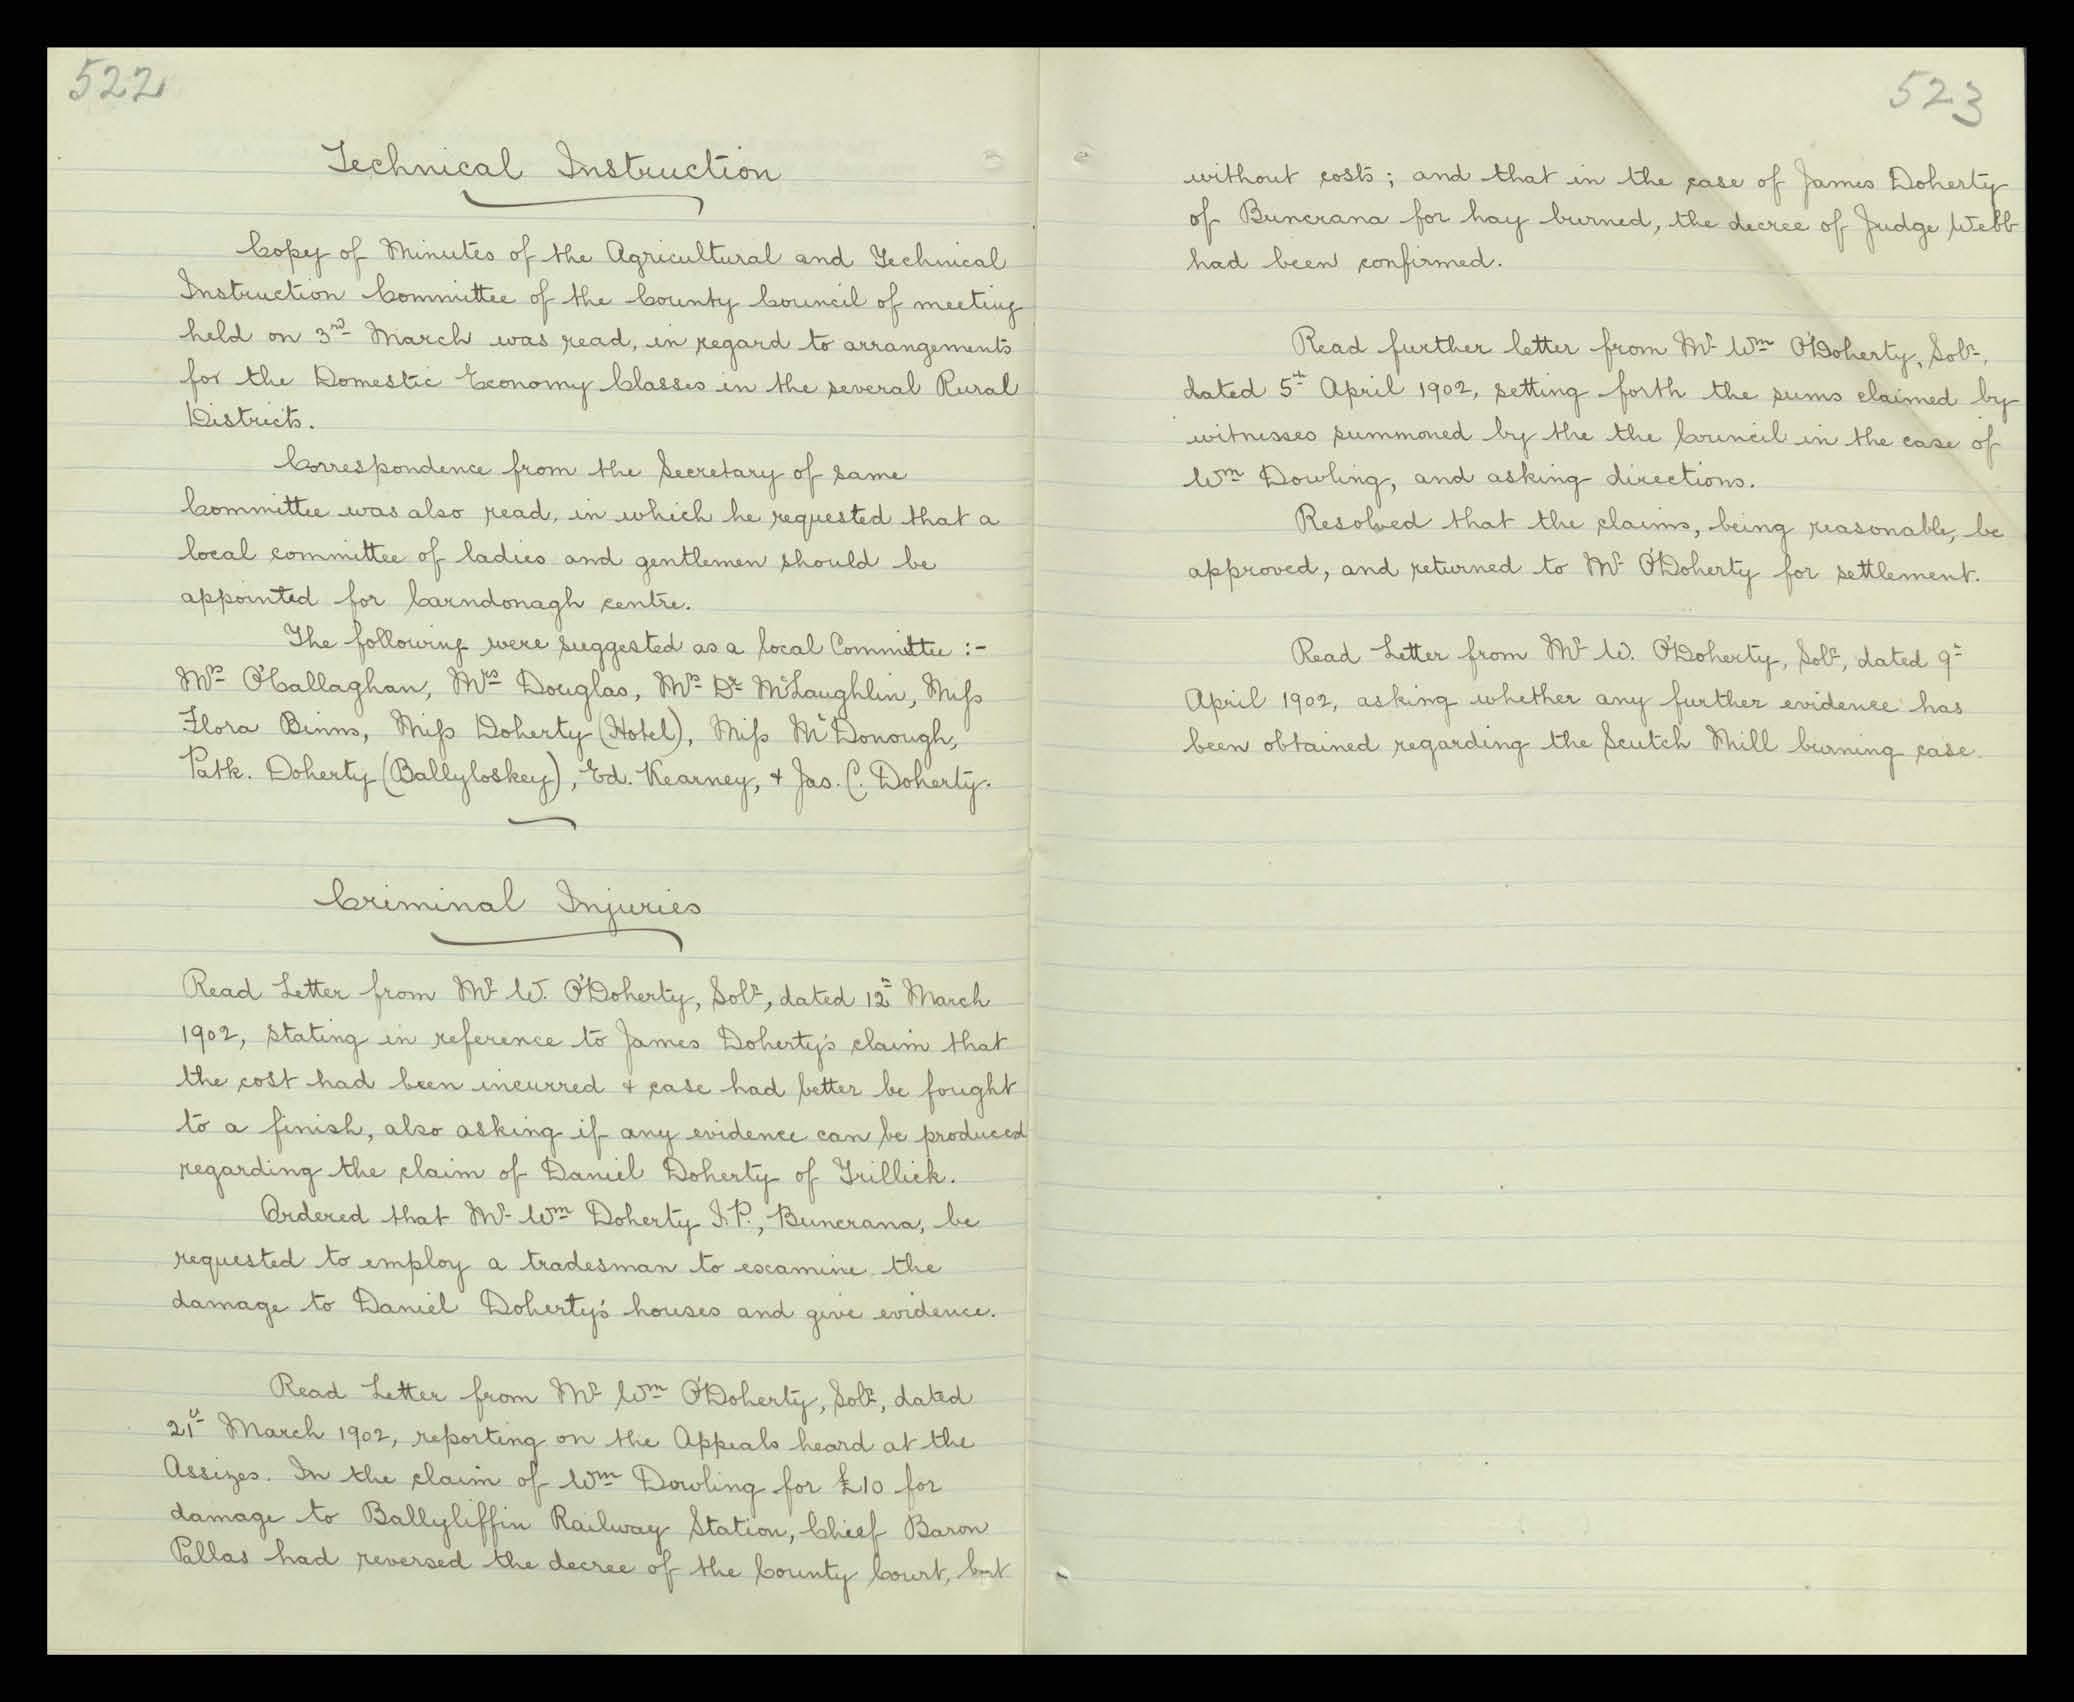 522
Technical Instruction
Copy of Minutes of the Agricultural and Technical
Instruction Committee of the County Council of meeting
held on 3rd March was read, in regard to arrangements
for the Domestic Economy Classes in the several Rural
Districts.
Correspondence from the Secretary of same
Committee was also read, in which he requested that a
local committee of ladies and gentlemen should be
appointed for Carndonagh centre.
The following were suggested as a local Committee :-
Mrs O'Callaghan, Mrs Douglas, Mrs Dr McLaughlin, Miss
Flora Binns, Miss Doherty (Hotel), Miss McDonough,
Patk. Doherty (Ballyloskey), Ed. Kearney, & Jas. C. Doherty.
Criminal Injuries
Read Letter from Mr W. O'Doherty, Solr, dated 12th March
1902, stating in reference to James Doherty's claim that
the cost had been incurred & case had better be fought
to a finish, also asking if any evidence can be produced
regarding the claim of Daniel Doherty of Trillick.
Ordered that Mr Wm Doherty J.P., Buncrana, be
requested to employ a tradesman to examine the
damage to Daniel Doherty's houses and give evidence.
Read Letter from Mr Wm O'Doherty, Solr, dated
21st March 1902, reporting on the Appeals heard at the
Assizes. In the claim of Wm Dowling for £10 for
damage to Ballyliffin Railway Station, Chief Baron
Pallas had reversed the decree of the County Court, but
523
without costs; and that in the case of James Doherty
of Buncrana for hay burned, the decree of Judge Webb
had been confirmed.
Read further letter from Mr Wm O'Doherty, Solr,
dated 5th April 1902, setting forth the sums claimed by
witnesses summoned by the the Council in the case of
Wm Dowling, and asking directions.
Resolved that the claims, being reasonable, be
approved, and returned to Mr O'Doherty for settlement.
Read Letter from Mr W. O'Doherty, Solr, dated 9th
April 1902, asking whether any further evidence has
been obtained regarding the Scutch Mill burning case.